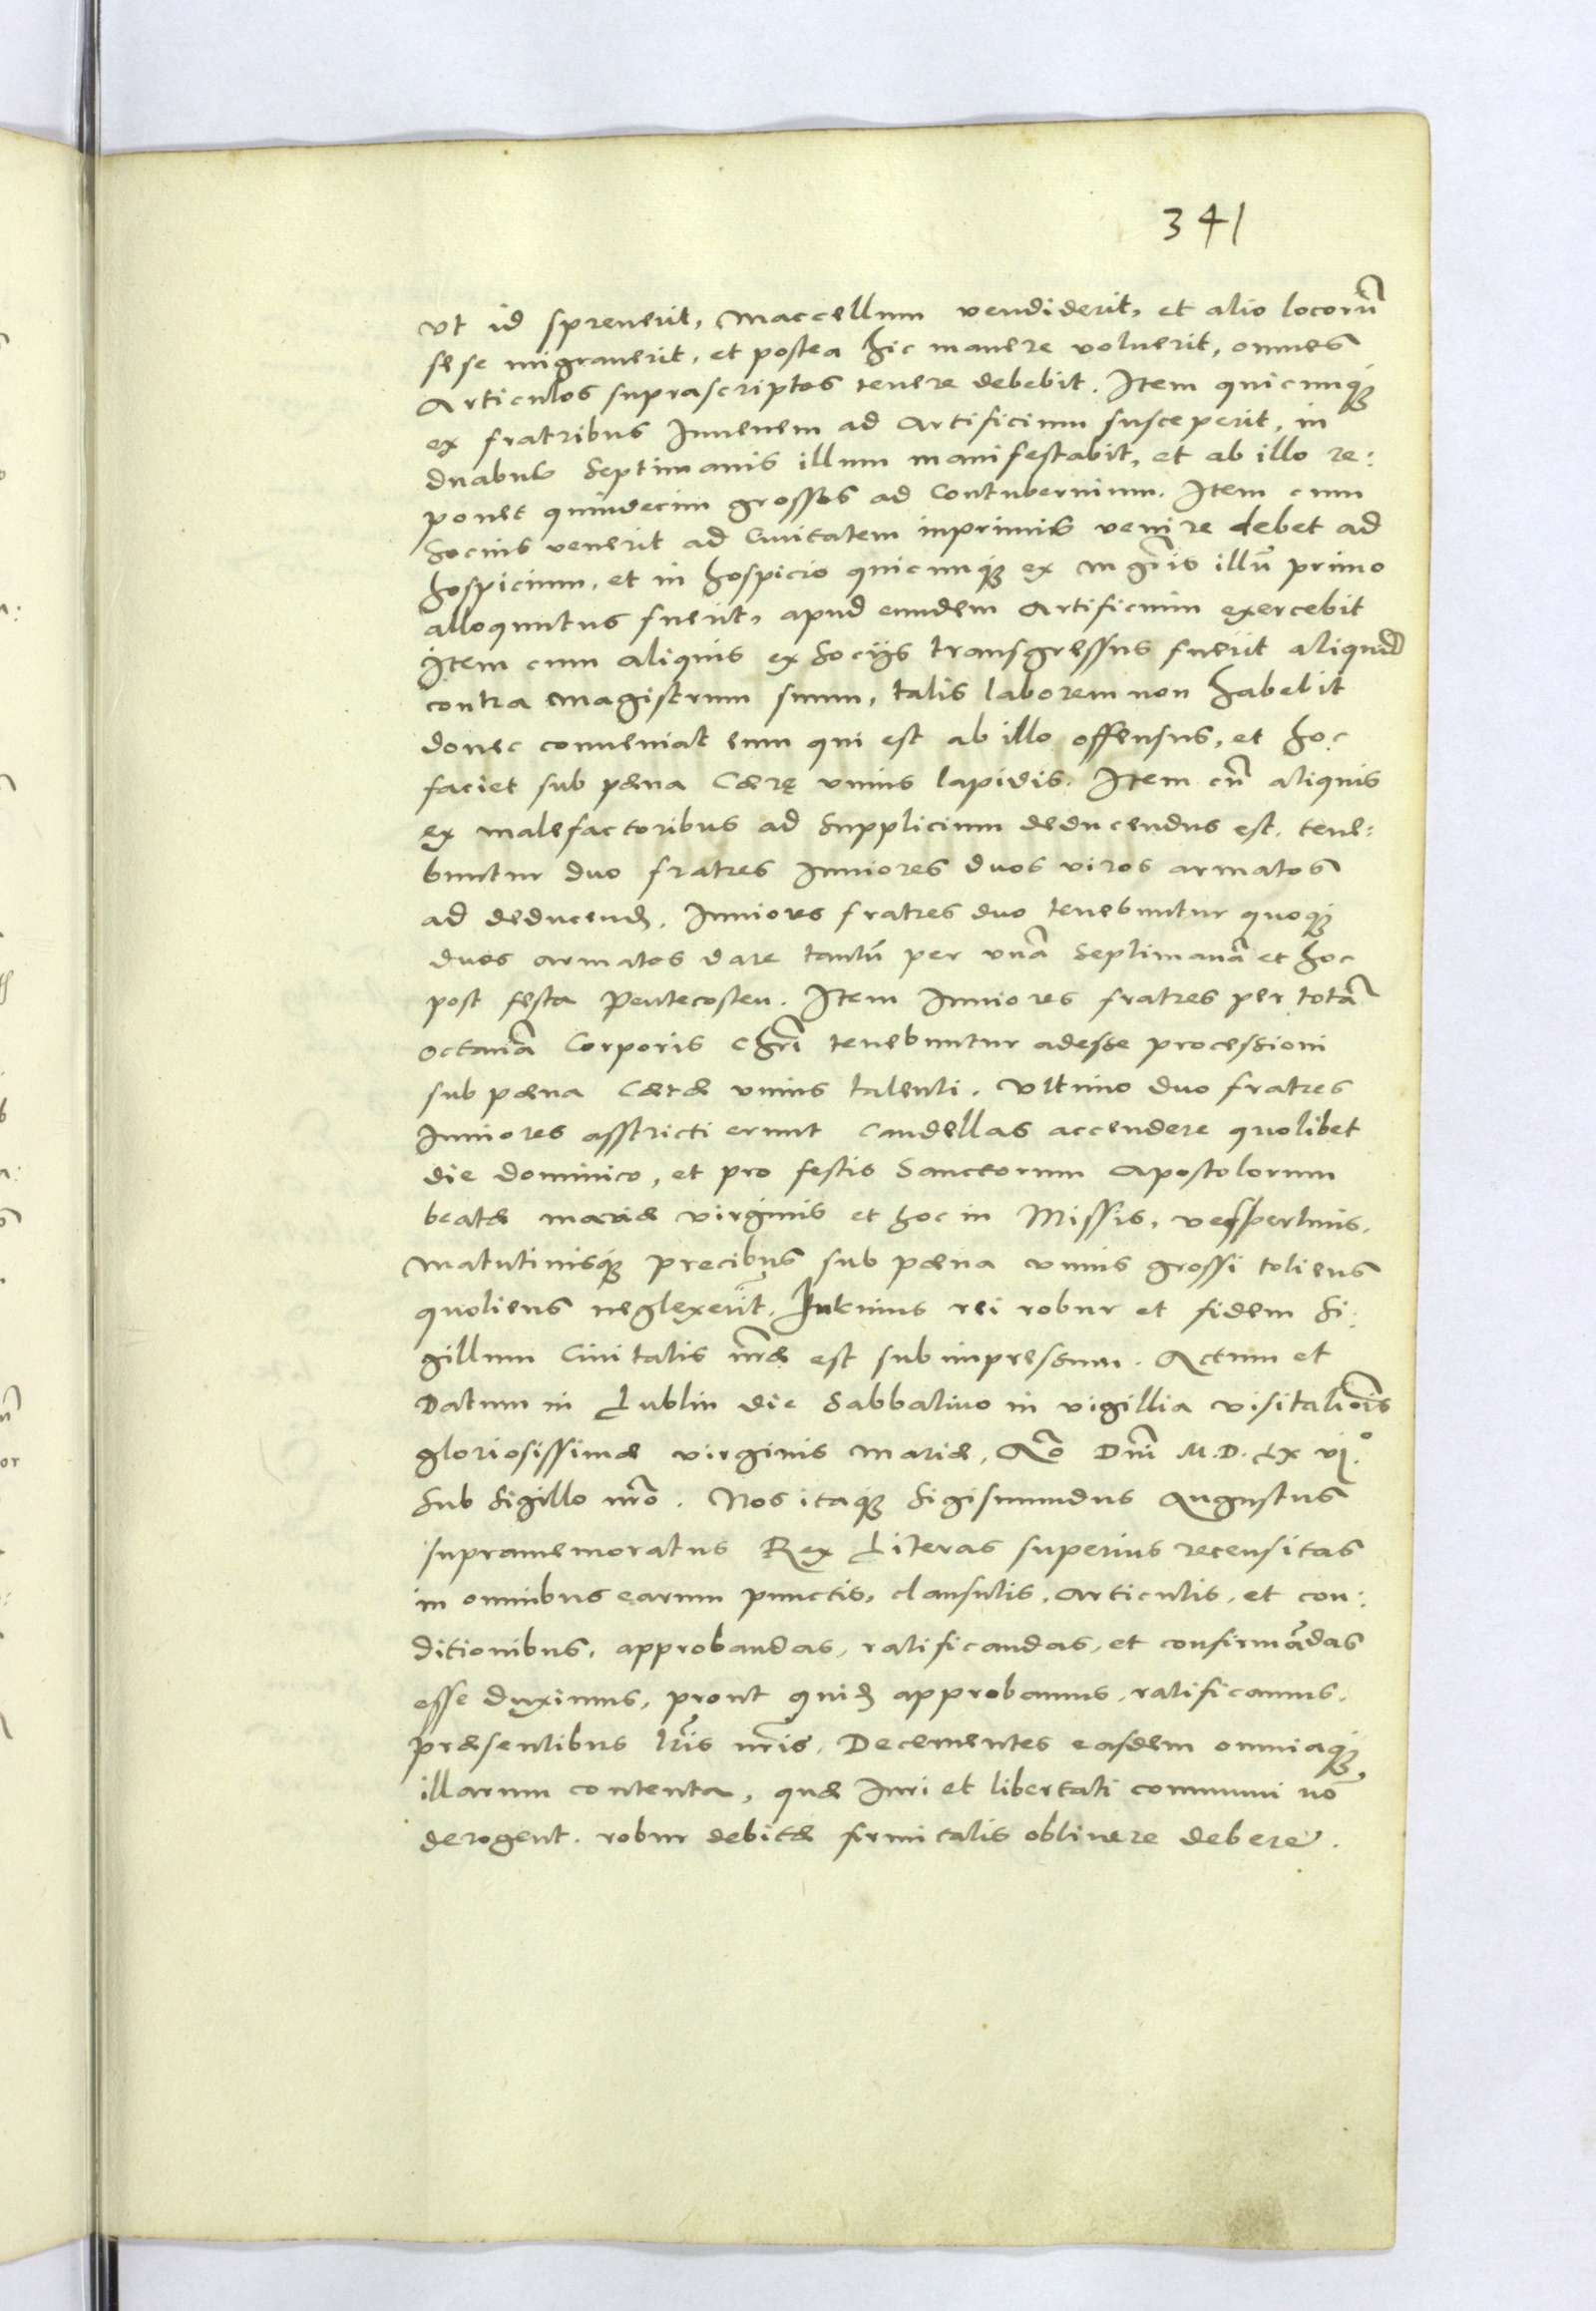 341
vt id spreuerit, maccellum vendiderit, et alio locorũ
sese migrauerit, et postea hic manere voluerit, omnes
Articulos suprascriptos tenere debebit. Item quicunqꝫ
ex fratribus Iuuenem ad Artificium susceperit, in
duabus Septimanis illum manifestabit, et ab illo re:
ponet quindecim grossos ad Contubernium. Item cum
Socius venerit ad Ciuitatem inprimis venire debet ad
hospicium, et in hospicio quicunqꝫ ex mgr̃is illũ primo
alloquutus fuerit, apud eundem Artificium exercebit
Item cum aliquis ex Socijs transgressus fuerit aliquid
contra magistrum suum, talis laborem non habebit
donec conueniat eum qui est ab illo offensus, et hoc
faciet sub pæna Cærę vnius lapidis. Item cũ aliquis
ex malefactoribus ad Supplicium deducendus est. tene:
buntur duo fratres Iuniores duos viros armatos
ad deducend. Iuniores fratres duo tenebuntur quoqꝫ
duos armatos dare tantũ per vnã Septimanã et hoc
post festa Pentecosten. Item Iuniores fratres per totã
octauã Corporis Chr̃i tenebuntur adesse processioni
sub pæna Cæræ vnius talenti. Vltimo duo fratres
Iuniores asstricti erunt Candellas accendere quolibet
die dominico, et pro festis Sanctorum Apostolorum
beatæ mariæ virginis et hoc in Missis, vespertinis.
Matutinisqꝫ precibus sub pæna vnius grossi toties
quotiens neglexerĩt. In cuius rei robur et fidem Si:
gillum Ciuitatis nr̃æ est sub impressum. Actum et
Datum in Lublin die Sabbatiuo in vigillia visitatiõis
gloriosissimæ virginis mariæ, Aõ Dnĩ M.D.Lx vj.º
Sub Sigillo nr̃o. Nos itaqꝫ Sigismundus Augustus
supramemoratus Rex Literas superius recensitas
in omnibus earum punctis, clausulis, articulis, et con:
ditionibus, approbandas, ratificandas, et confirmãdas
esse duximus, prout quid approbamus, ratificamus,
præsentibus lr̃is nr̃is. Decernentes easdem omniaqꝫ
illarum contenta, quæ Iuri et libertati communi nõ
derogent. robur debitæ firmitatis obtinere debere.